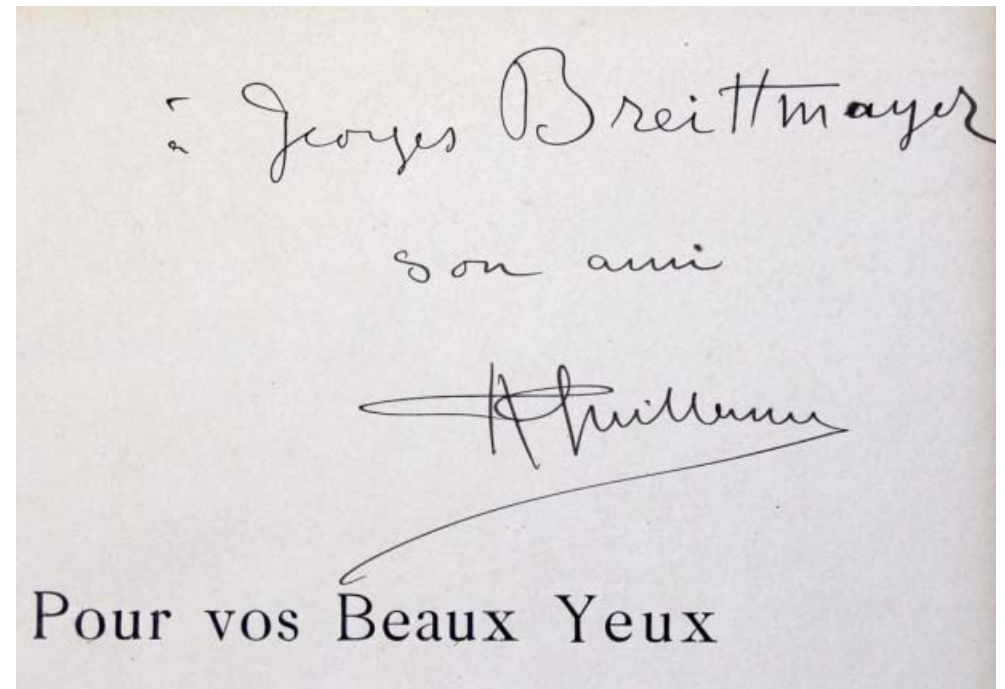 à Georges Breittmayer
son ami
A Guillaume
Pour vos Beaux Yeux